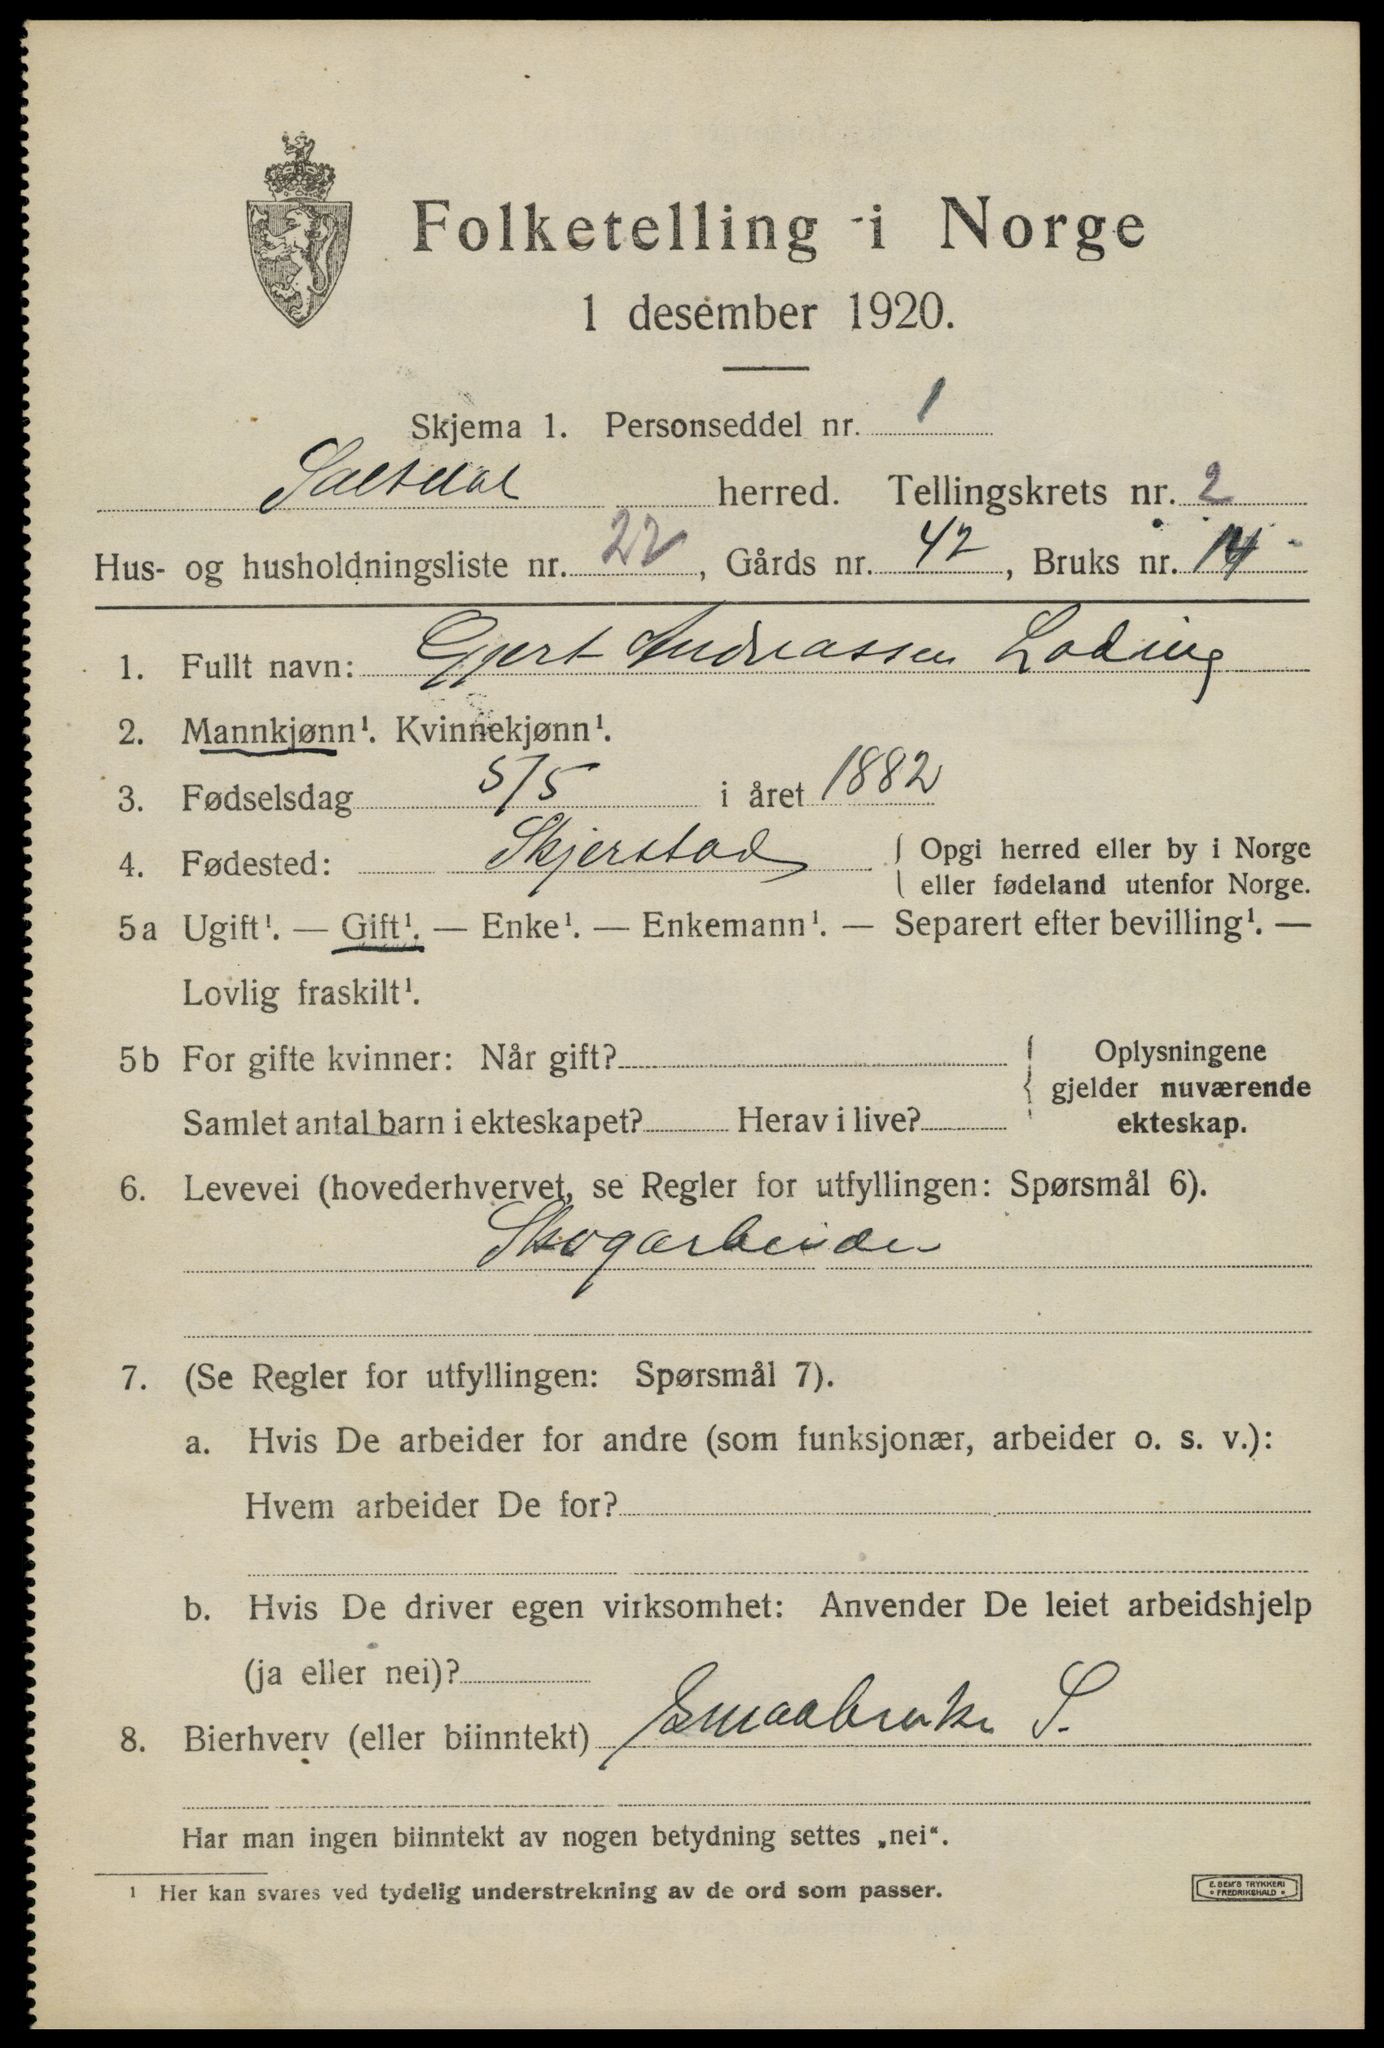 Folketelling i Norge
1 desember 1920.
Skjema 1. Personseddel nr. 1
Saltdal herred. Tellingskrets nr. 2
Hus- og husholdningsliste nr. 22, Gårds nr. 42, Bruks nr. 14
1. Fullt navn: Gjert Andreassen Loding
2. Mannkjønn¹. Kvinnekjønn¹.
3. Fødselsdag 5/5 i året 1882
4. Fødested: Skjerstad { Opgi herred eller by i Norge
eller fødeland utenfor Norge.
5a Ugift¹. — Gift¹. — Enke¹. — Enkemann¹. — Separert efter bevilling¹. —
Lovlig fraskilt¹.
5b For gifte kvinner: Når gift? { Oplysningene
gjelder nuværende
Samlet antal barn i ekteskapet? Herav i live? ekteskap.
6. Levevei (hovederhvervet, se Regler for utfyllingen: Spørsmål 6).
Skogarbeider
7. (Se Regler for utfyllingen: Spørsmål 7).
a. Hvis De arbeider for andre (som funksjonær, arbeider o. s. v.):
Hvem arbeider De for?
b. Hvis De driver egen virksomhet: Anvender De leiet arbeidshjelp
(ja eller nei)?
8. Bierhverv (eller biinntekt) Smaabruker S.
Har man ingen biinntekt av nogen betydning settes „nei“.
¹ Her kan svares ved tydelig understrekning av de ord som passer.
E. SEM'S TRYKKERI
FREDRIKSHALD